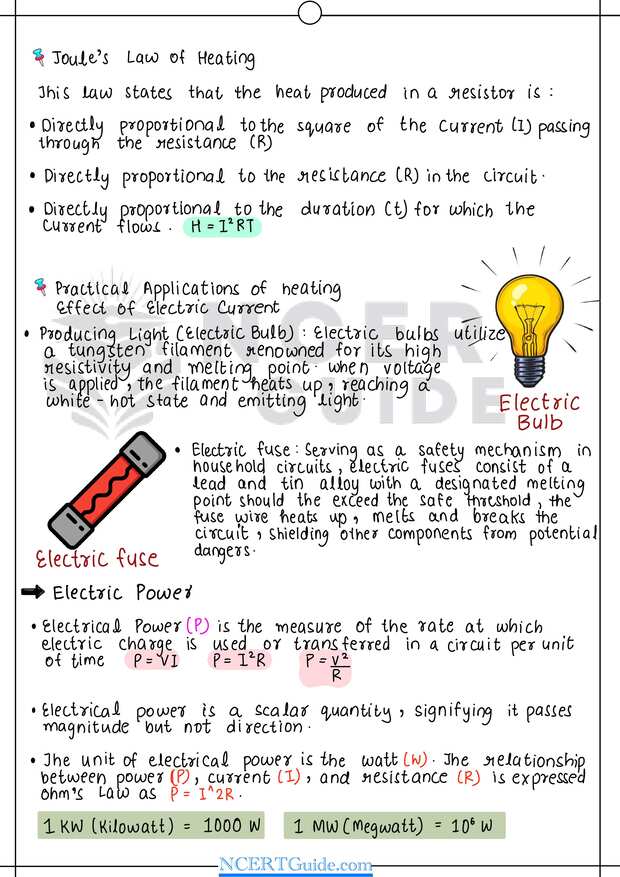 Joule's Law of Heating
This law states that the heat produced in a resistor is :
• Directly proportional to the square of the current (I) passing
through the resistance (R)
• Directly proportional to the resistance (R) in the circuit.
• Directly proportional to the duration (t) for which the
current flows. H = I²RT
Practical Applications of heating
Effect of Electric Current
• Producing Light (Electric Bulb) : Electric bulbs utilize
a tungsten filament renowned for its high
resistivity and melting point. when voltage
is applied, the filament heats up, reaching a
white-hot state and emitting light.
Electric
Bulb
• Electric fuse : Serving as a safety mechanism in
household circuits, electric fuses consist of a
lead and tin alloy with a designated melting
point should the exceed the safe threshold, the
fuse wire heats up, melts and breaks the
circuit, shielding other components from potential
dangers.
Electric fuse
➡ Electric Power
• Electrical Power (P) is the measure of the rate at which
electric charge is used or transferred in a circuit per unit
of time P = VI P = I²R P = V²/R
• Electrical power is a scalar quantity, signifying it passes
magnitude but not direction.
• The unit of electrical power is the watt (W). The relationship
between power (P), current (I), and resistance (R) is expressed
ohm's Law as P = I^2R.
1 KW (Kilowatt) = 1000 W 1 MW (Megwatt) = 10⁶ W
NCERT
GUIDE
NCERTGuide.com